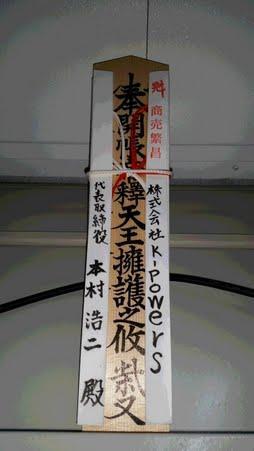 商売繁昌
株式会社 K.Powers
奉開帳帝釋天王擁護之攸
代表取締役 本村浩二 殿